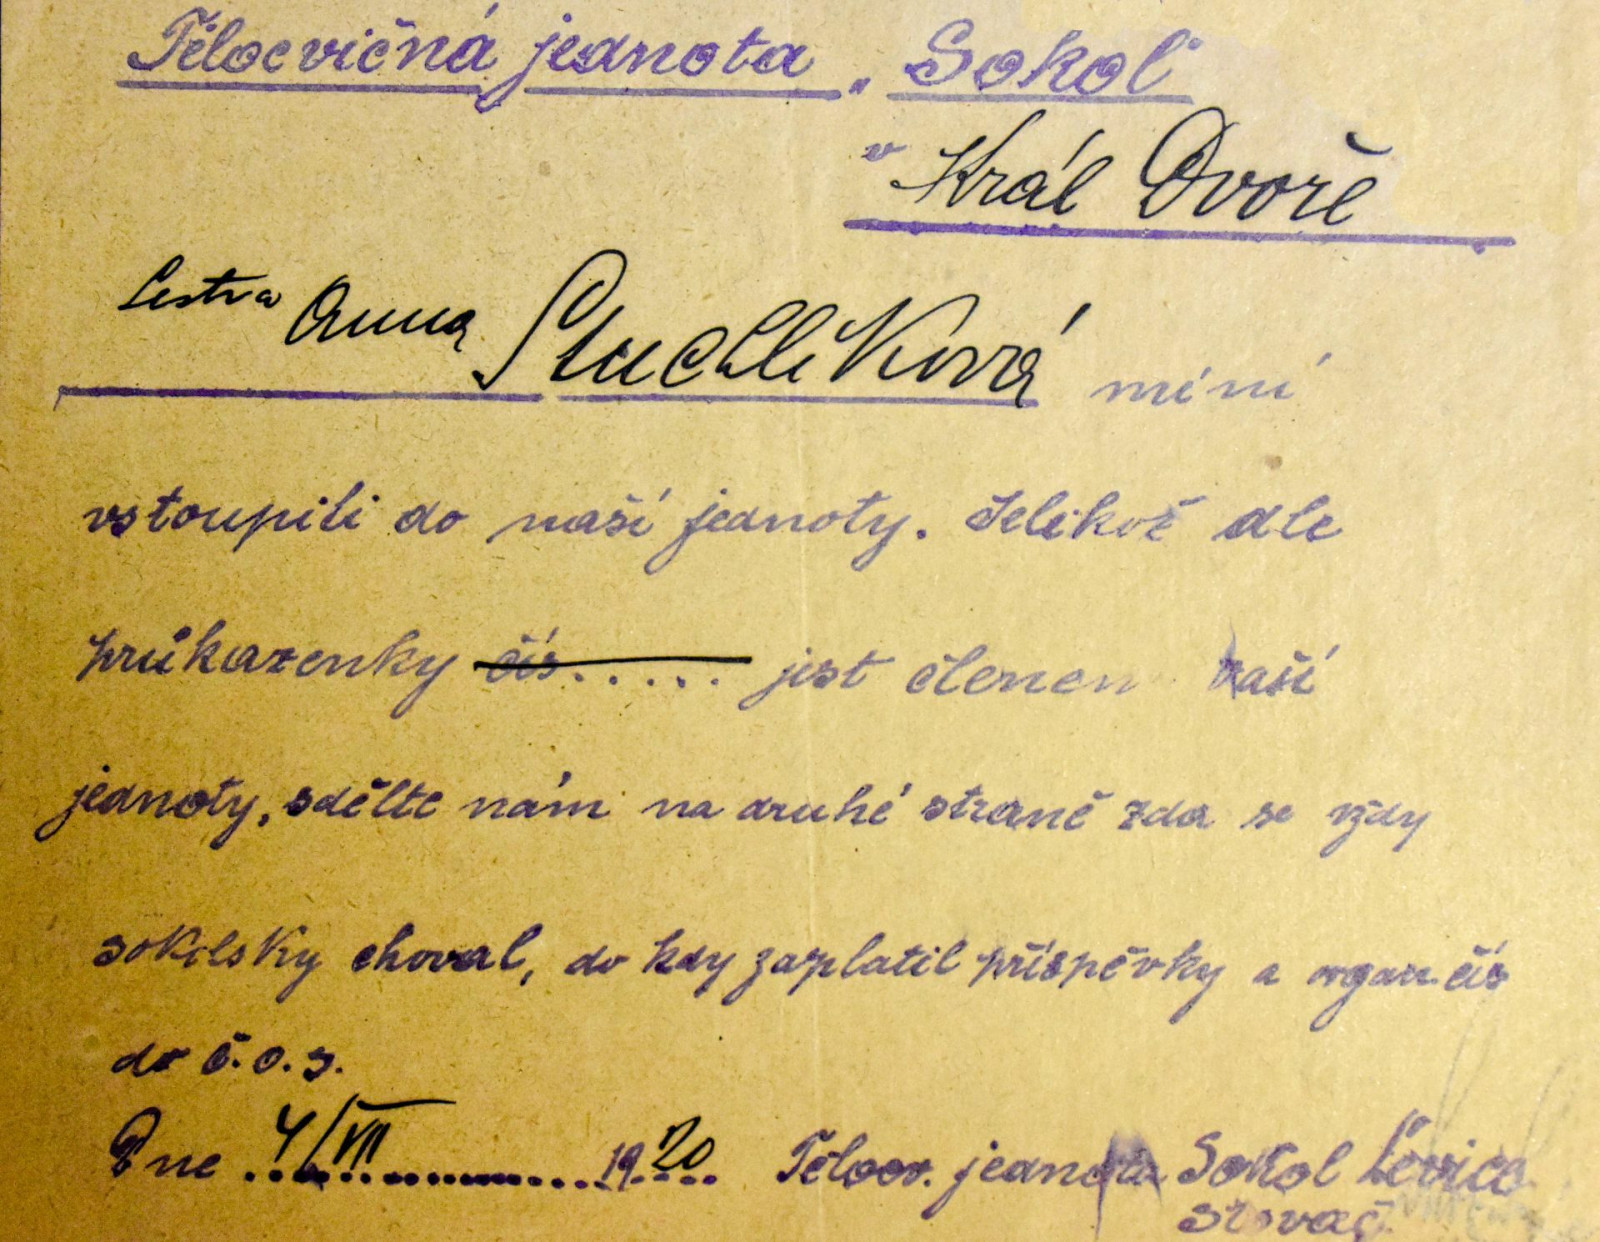 Tělocvičná jednota „Sokol"
v Král Dvoře
Sestra Anna Stuchlíková míní
vstoupiti do naší jednoty. Jelikož dle
průkazenky čís..... jest členem vaší
jednoty, sdělte nám na druhé straně zda se vždy
sokolsky choval, do kdy zaplatil příspěvky a organ. čís
do č.o.s.
Dne 4/VII 1920 Tělocv. jednota Sokol Levice